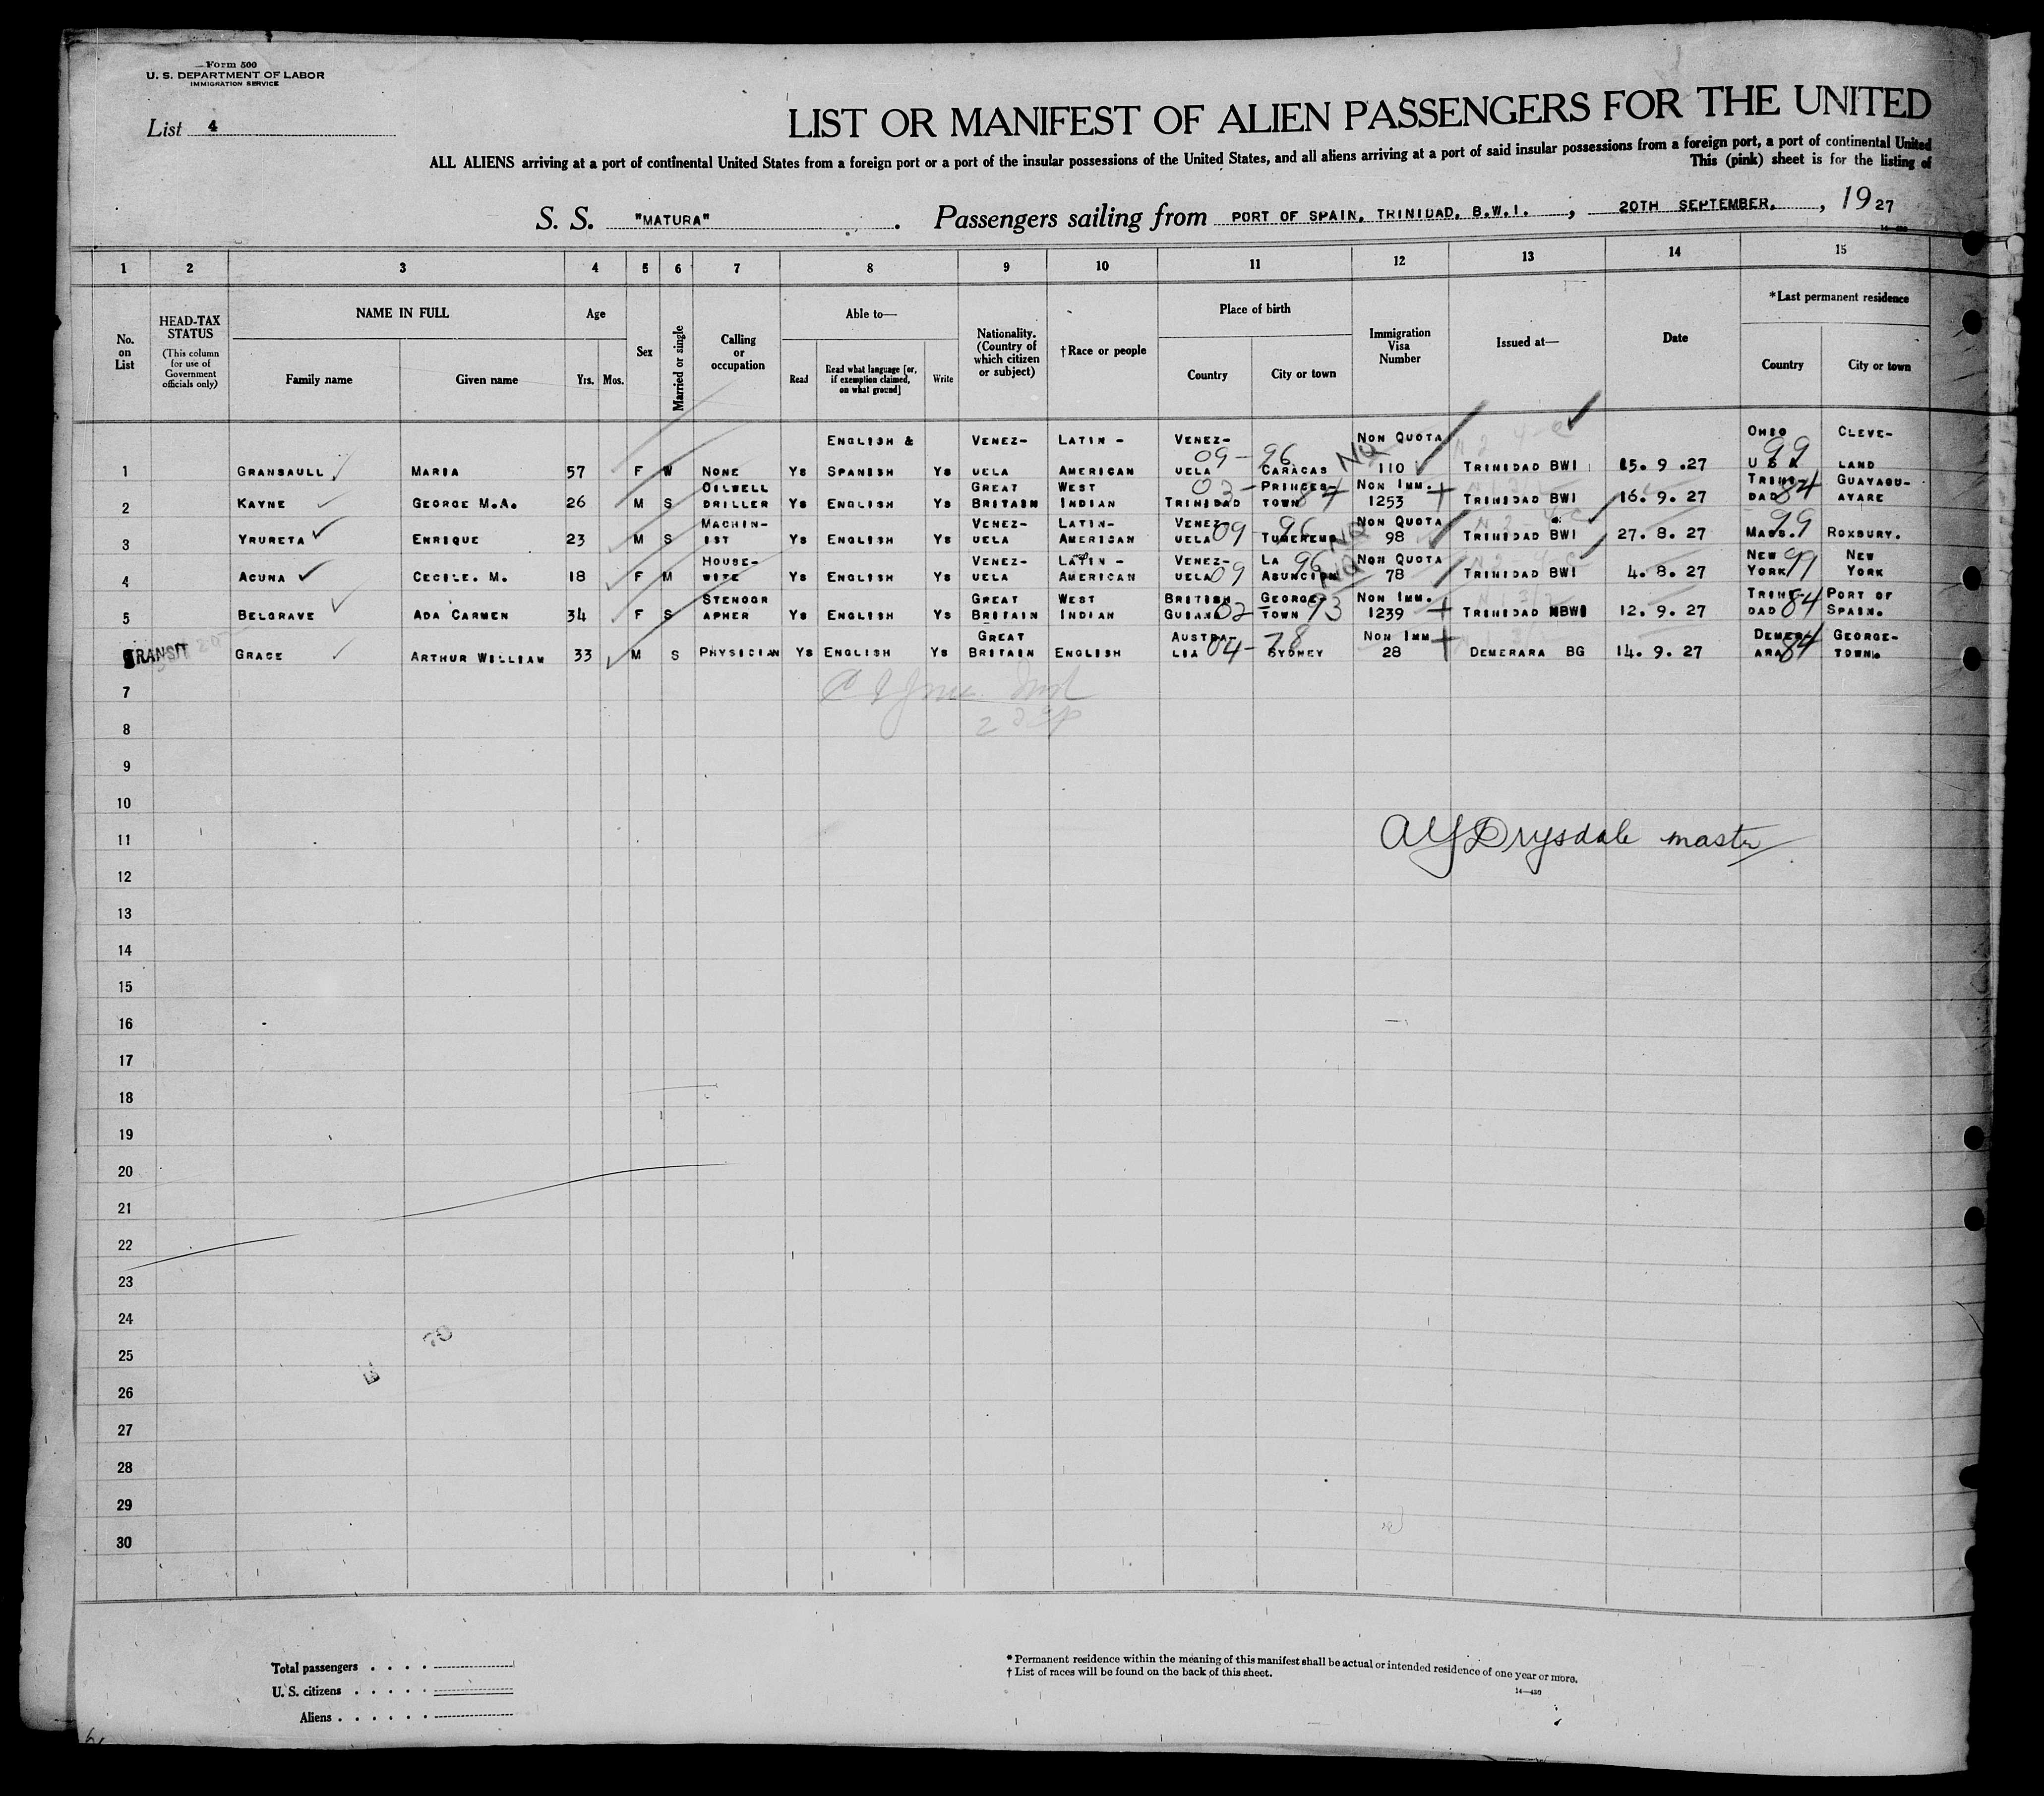 Form 500
U. S. DEPARTMENT OF LABOR
IMMIGRATION SERVICE
List 4
LIST OR MANIFEST OF ALIEN PASSENGERS FOR THE UNITED
ALL ALIENS arriving at a port of continental United States from a foreign port or a port of the insular possessions of the United States, and all aliens arriving at a port of said insular possessions from a foreign port, a port of continental United
This (pink) sheet is for the listing of
S. S. "MATURA". Passengers sailing from PORT OF SPAIN, TRINIDAD, B.W.I. , 20TH SEPTEMBER. , 19 27
1 2 3 4 5 6 7 8 9 10 11 12 13 14 15
No. on List
HEAD-TAX STATUS
(This column for use of Government officials only)
NAME IN FULL
Family name Given name
Age
Yrs. Mos.
Sex
Married or single
Calling or occupation
Able to—
Read
Read what language [or, if exemption claimed, on what ground]
Write
Nationality. (Country of which citizen or subject)
†Race or people
Place of birth
Country City or town
Immigration Visa Number
Issued at—
Date
*Last permanent residence
Country City or town
ENGLISH & VENEZ- LATIN - VENEZ- NON QUOTA OHIO CLEVE-
09 - 96 NQ 99
1 GRANSAULL MARIA 57 F W NONE YS SPANISH YS UELA AMERICAN UELA CARACAS 110 TRINIDAD BWI 15. 9 .27 U S A LAND
OILWELL GREAT WEST 03 - PRINCES- NON IMM. TRINI- GUAYAGU-
2 KAYNE GEORGE M.A. 26 M S DRILLER YS ENGLISH YS BRITAIN INDIAN TRINIDAD TOWN 87 1253 TRINIDAD BWI 16. 9. 27 DAD 84 AYARE
MACHIN- VENEZ- LATIN- VENEZ- 96 NQ NON QUOTA 99
3 YRURETA ENRIQUE 23 M S IST YS ENGLISH YS UELA AMERICAN UELA 09 TUMEREMO 98 TRINIDAD BWI 27. 8. 27 MASS. ROXBURY.
HOUSE- VENEZ- LATIN - VENEZ- LA 96 NQ NON QUOTA NEW 99 NEW
4 ACUNA CECILE. M. 18 F M WIFE YS ENGLISH YS UELA AMERICAN UELA 09 ASUNCION 78 TRINIDAD BWI 4. 8. 27 YORK YORK
STENOGR GREAT WEST BRITISH GEORGE- NON IMM. TRINI- PORT OF
5 BELGRAVE ADA CARMEN 34 F S APHER YS ENGLISH YS BRITAIN INDIAN GUIANA 02 - TOWN 93 1239 TRINIDAD BWI 12. 9. 27 DAD 84 SPAIN.
GREAT AUSTRA- 78 NON IMM DEMER- GEORGE-
TRANSIT GRACE ARTHUR WILLIAM 33 M S PHYSICIAN YS ENGLISH YS BRITAIN ENGLISH LIA 04 - SYDNEY 28 DEMERARA BG 14. 9. 27 ARA 84 TOWN.
7
8
9
10
11 AY Drysdale master
12
13
14
15
16
17
18
19
20
21
22
23
24
25
26
27
28
29
30
Total passengers . . . .
U. S. citizens . . . . .
Aliens . . . . . .
*Permanent residence within the meaning of this manifest shall be actual or intended residence of one year or more.
† List of races will be found on the back of this sheet.
14—430